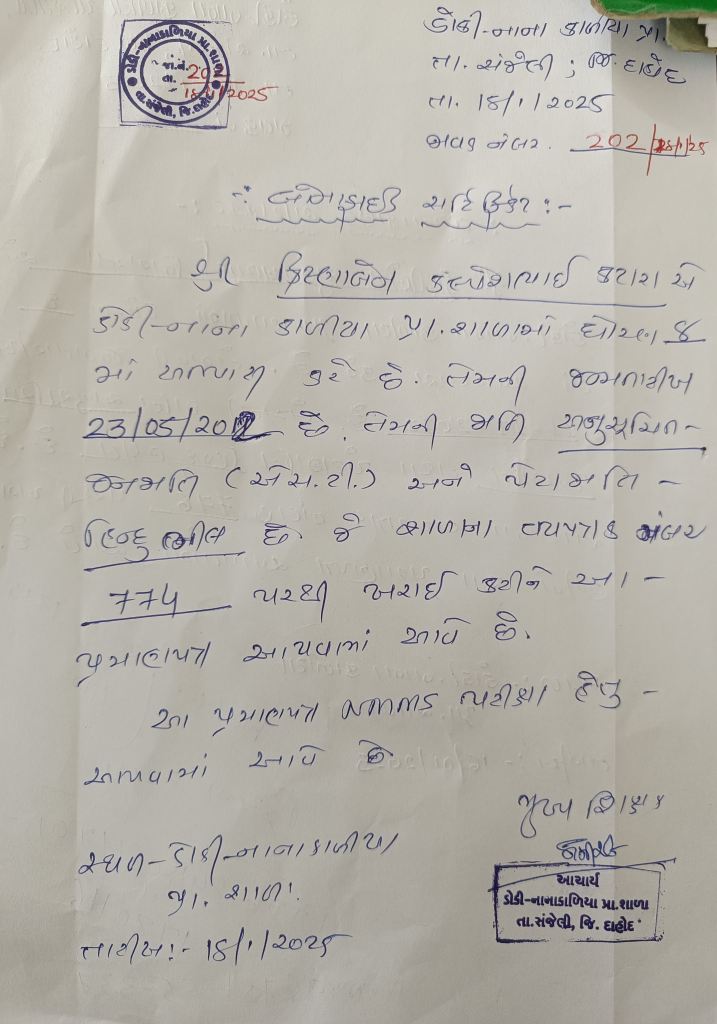 ડોકી-નાના કાળીયા પ્રા.
તા. સંજેલી ; જિ. દાહોદ
તા. 18/1/2025
જાવક નંબર. 202/18/1/25
ડોકી-નાનાકાળિયા પ્રા.શાળા
જા.નં. 20
તા. 18/1/2025
તા.સંજેલી, જિ.દાહોદ
:- બોનાફાઈડ સર્ટિફિકેટ :-
શ્રી કિરણબેન કલ્પેશભાઈ કટારા એ
ડોકી-નાના કાળીયા પ્રા.શાળામાં ધોરણ 8
માં અભ્યાસ કરે છે. તેમની જન્મતારીખ
23/05/2012 છે. તેમની જાતિ અનુસૂચિત-
જનજાતિ (એસ.ટી.) અને પેટાજાતિ -
હિન્દુ ભીલ છે. જે શાળાના વયપત્રક નંબર
774 પરથી ખરાઈ કરીને આ -
પ્રમાણપત્ર આપવામાં આવે છે.
આ પ્રમાણપત્ર NMMS પરીક્ષા હેતુ -
આપવામાં આવે છે
મુખ્ય શિક્ષક
આચાર્ય
ડોકી-નાનાકાળિયા પ્રા.શાળા
તા.સંજેલી, જિ. દાહોદ
સ્થળ- ડોકી-નાનાકાળીયા
પ્રા. શાળા.
તારીખ:- 18/1/2025